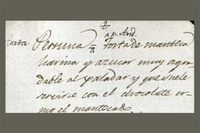 f.
s. p. And.
torta. Peruna = Torta de manteca
harina y azucar muy agra-
dable al paladar y que suele
servirse con el chocolate co-
mo el mantecado